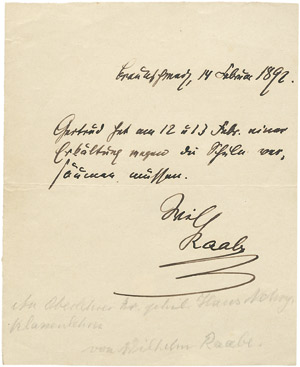 Braunschweig, 14 Februar 1892.
Gertrud hat am 12 u 13 Febr. einer
Erkältung wegen die Schule ver,
säumen müssen.
Wilh
Raabe
Oberlehrer Dr. phil. Hans
von Wilhelm Raabe.